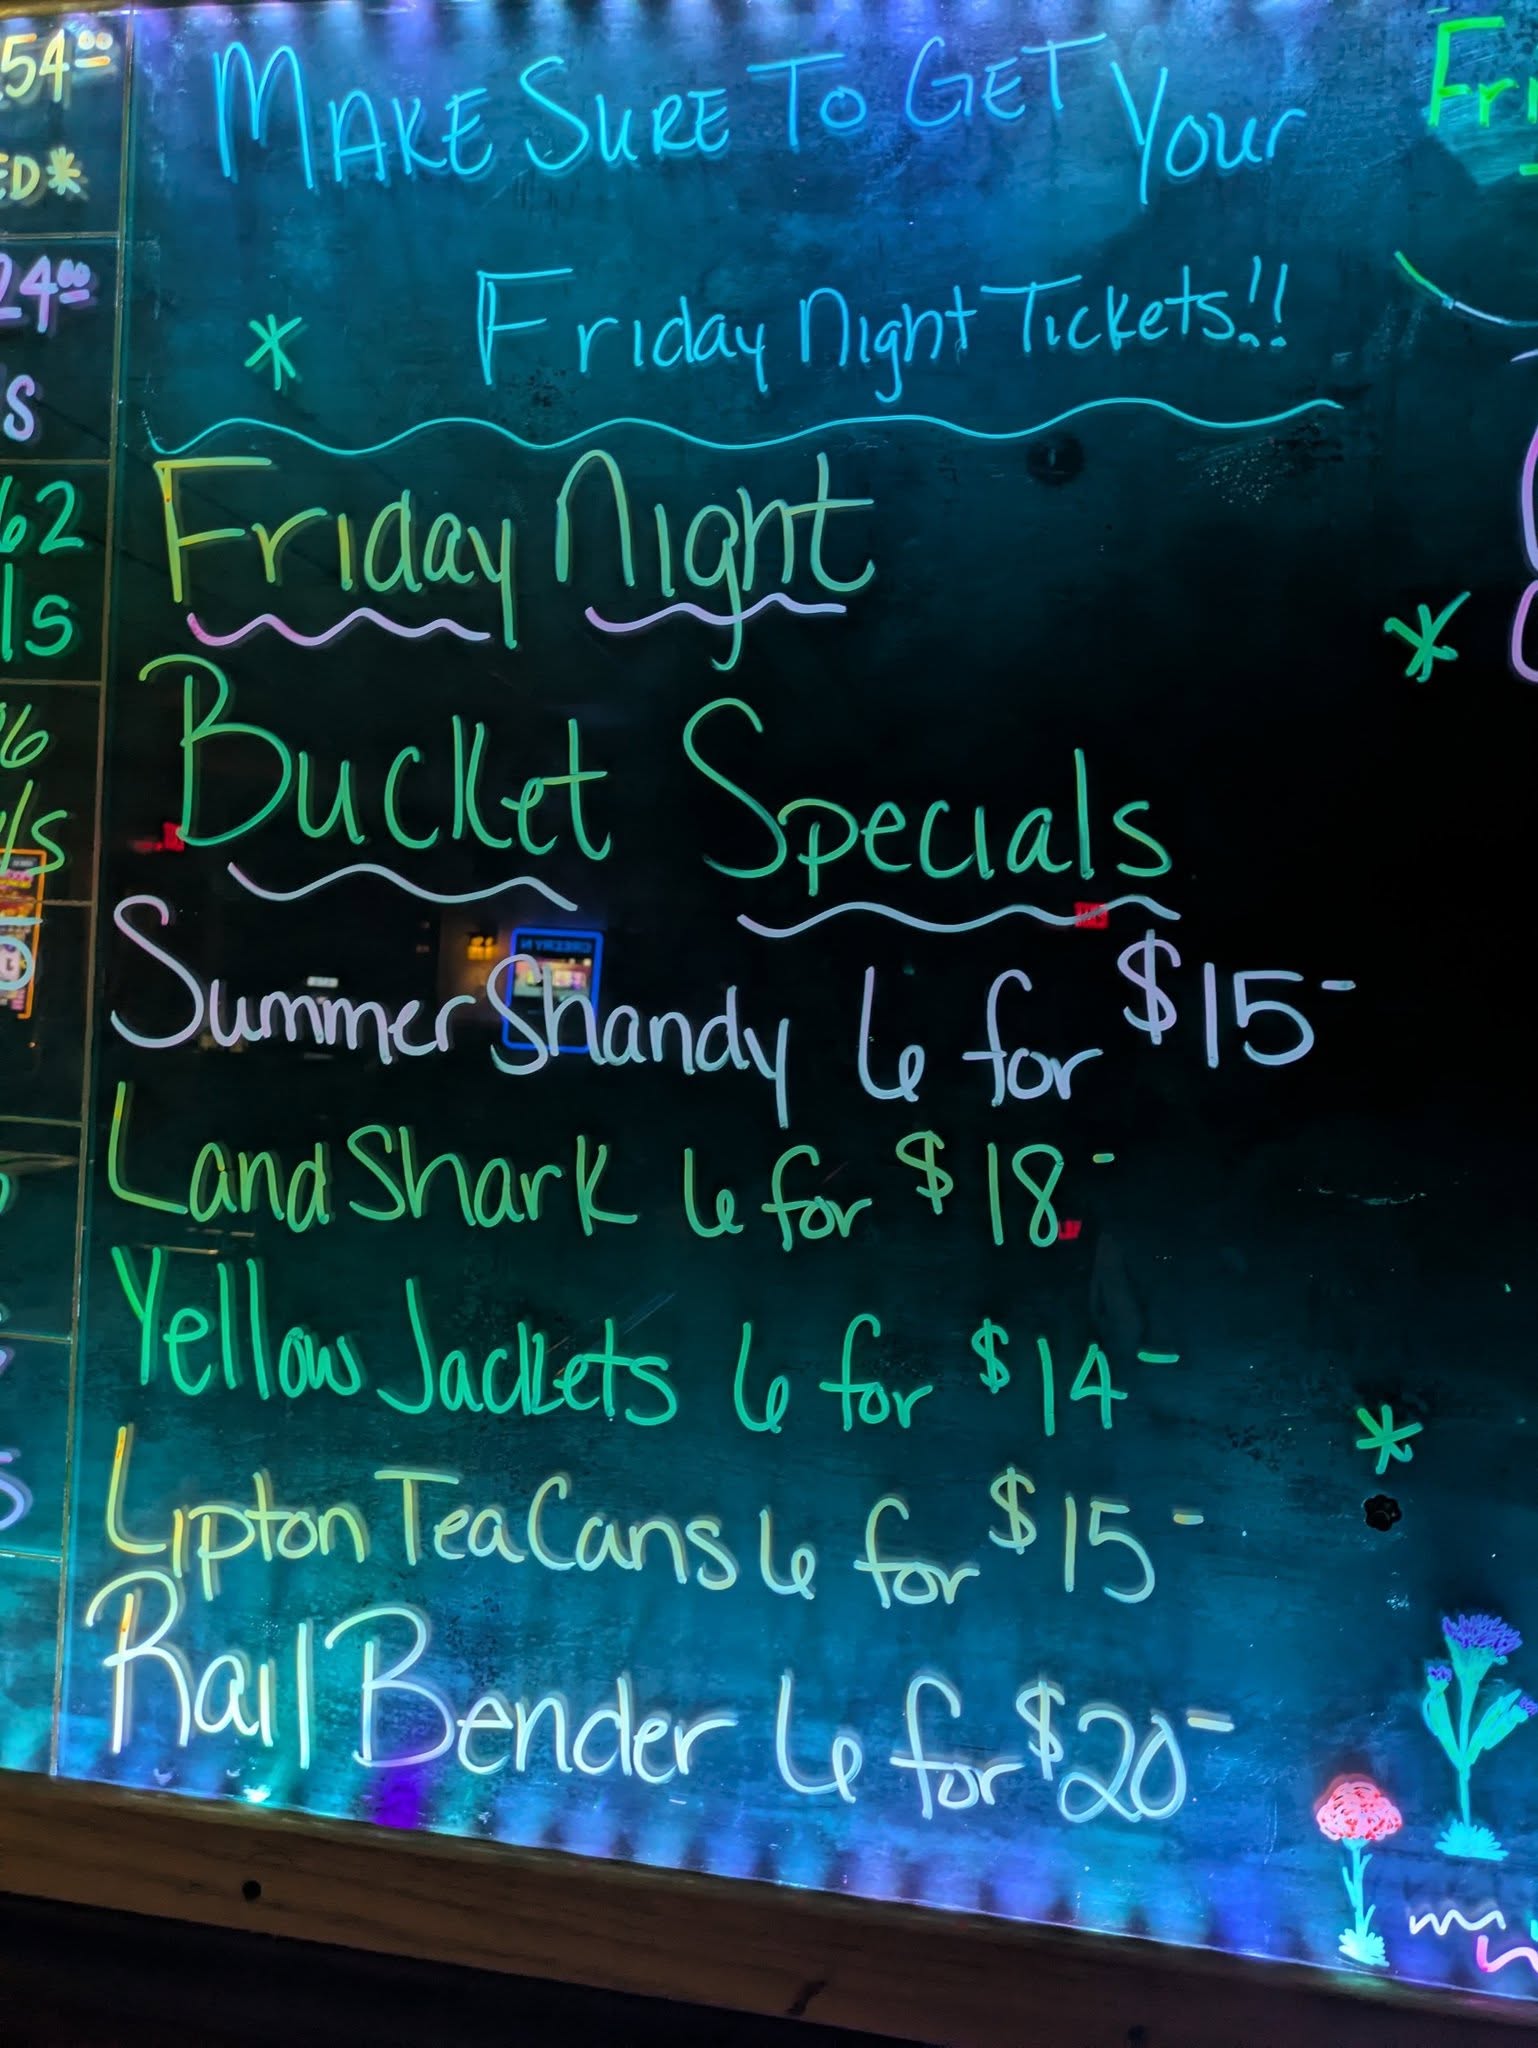 54.00
ED*
24.00
S
62
15
6
/S
MAKE SURE TO GET Your
Friday Night Tickets!!
Friday Night
Bucket Specials
Summer Shandy 6 for $15-
Land Shark 6 for $18-
Yellow Jackets 6 for $14-
Lipton Tea Cans 6 for $15-
Rail Bender 6 for $20-
Fri